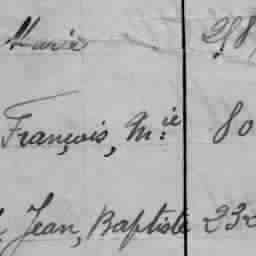 Marie 258
François, M.ie 80
Jean, Baptiste 232